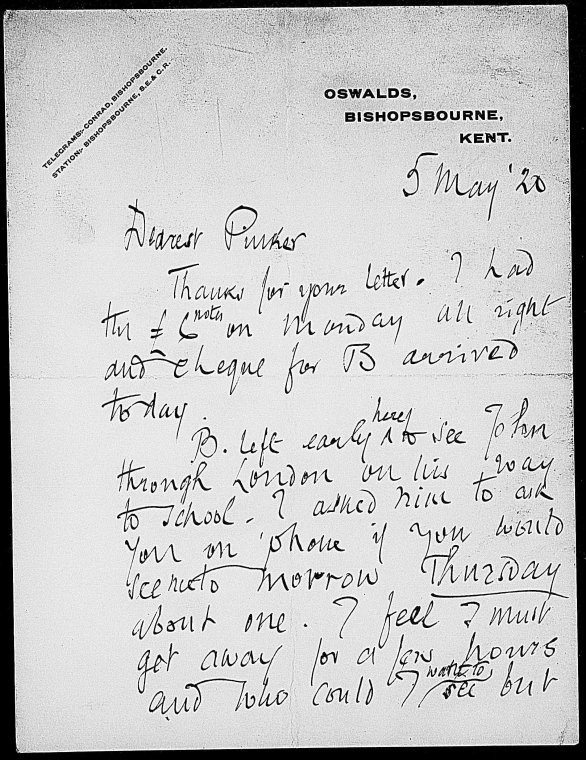 TELEGRAMS:- CONRAD, BISHOPSBOURNE.
STATION:- BISHOPSBOURNE, S.E. & C.R.
OSWALDS,
BISHOPSBOURNE,
KENT.
5 May '20
Dearest Pinker
Thanks for your letter. I had
the £6 notes on Monday all right
and cheque for B arrived
today.
B. left early here to see John
through London on his way
to school. I asked him to ask
you on 'phone if you would
see me to morrow Thursday
about one. I feel I must
get away for a few hours
and who could I want to see but